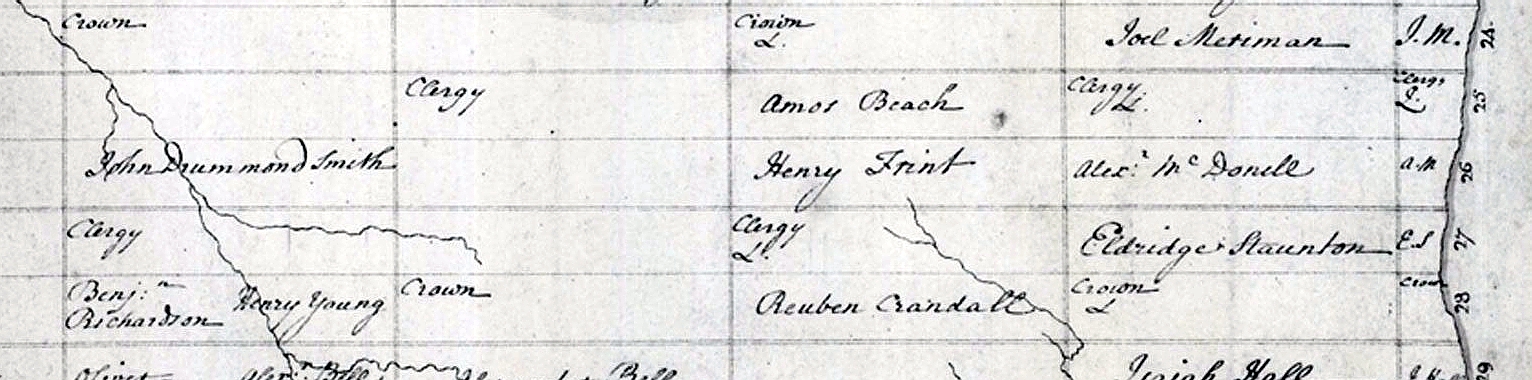 Crown Crown Joel Meriman J. M. 24
L.
Clergy Amos Beach Clergy Clergy 25
L. L.
John Drummond Smith Henry Frint Alex.r Mc Donell A. M 26
Clergy Clergy Eldridge Staunton E. S 27
L.
Benj.n Henry Young Crown Reuben Crandall Crown Crow 28
Richardson L
Bell Isaiah Hall 29